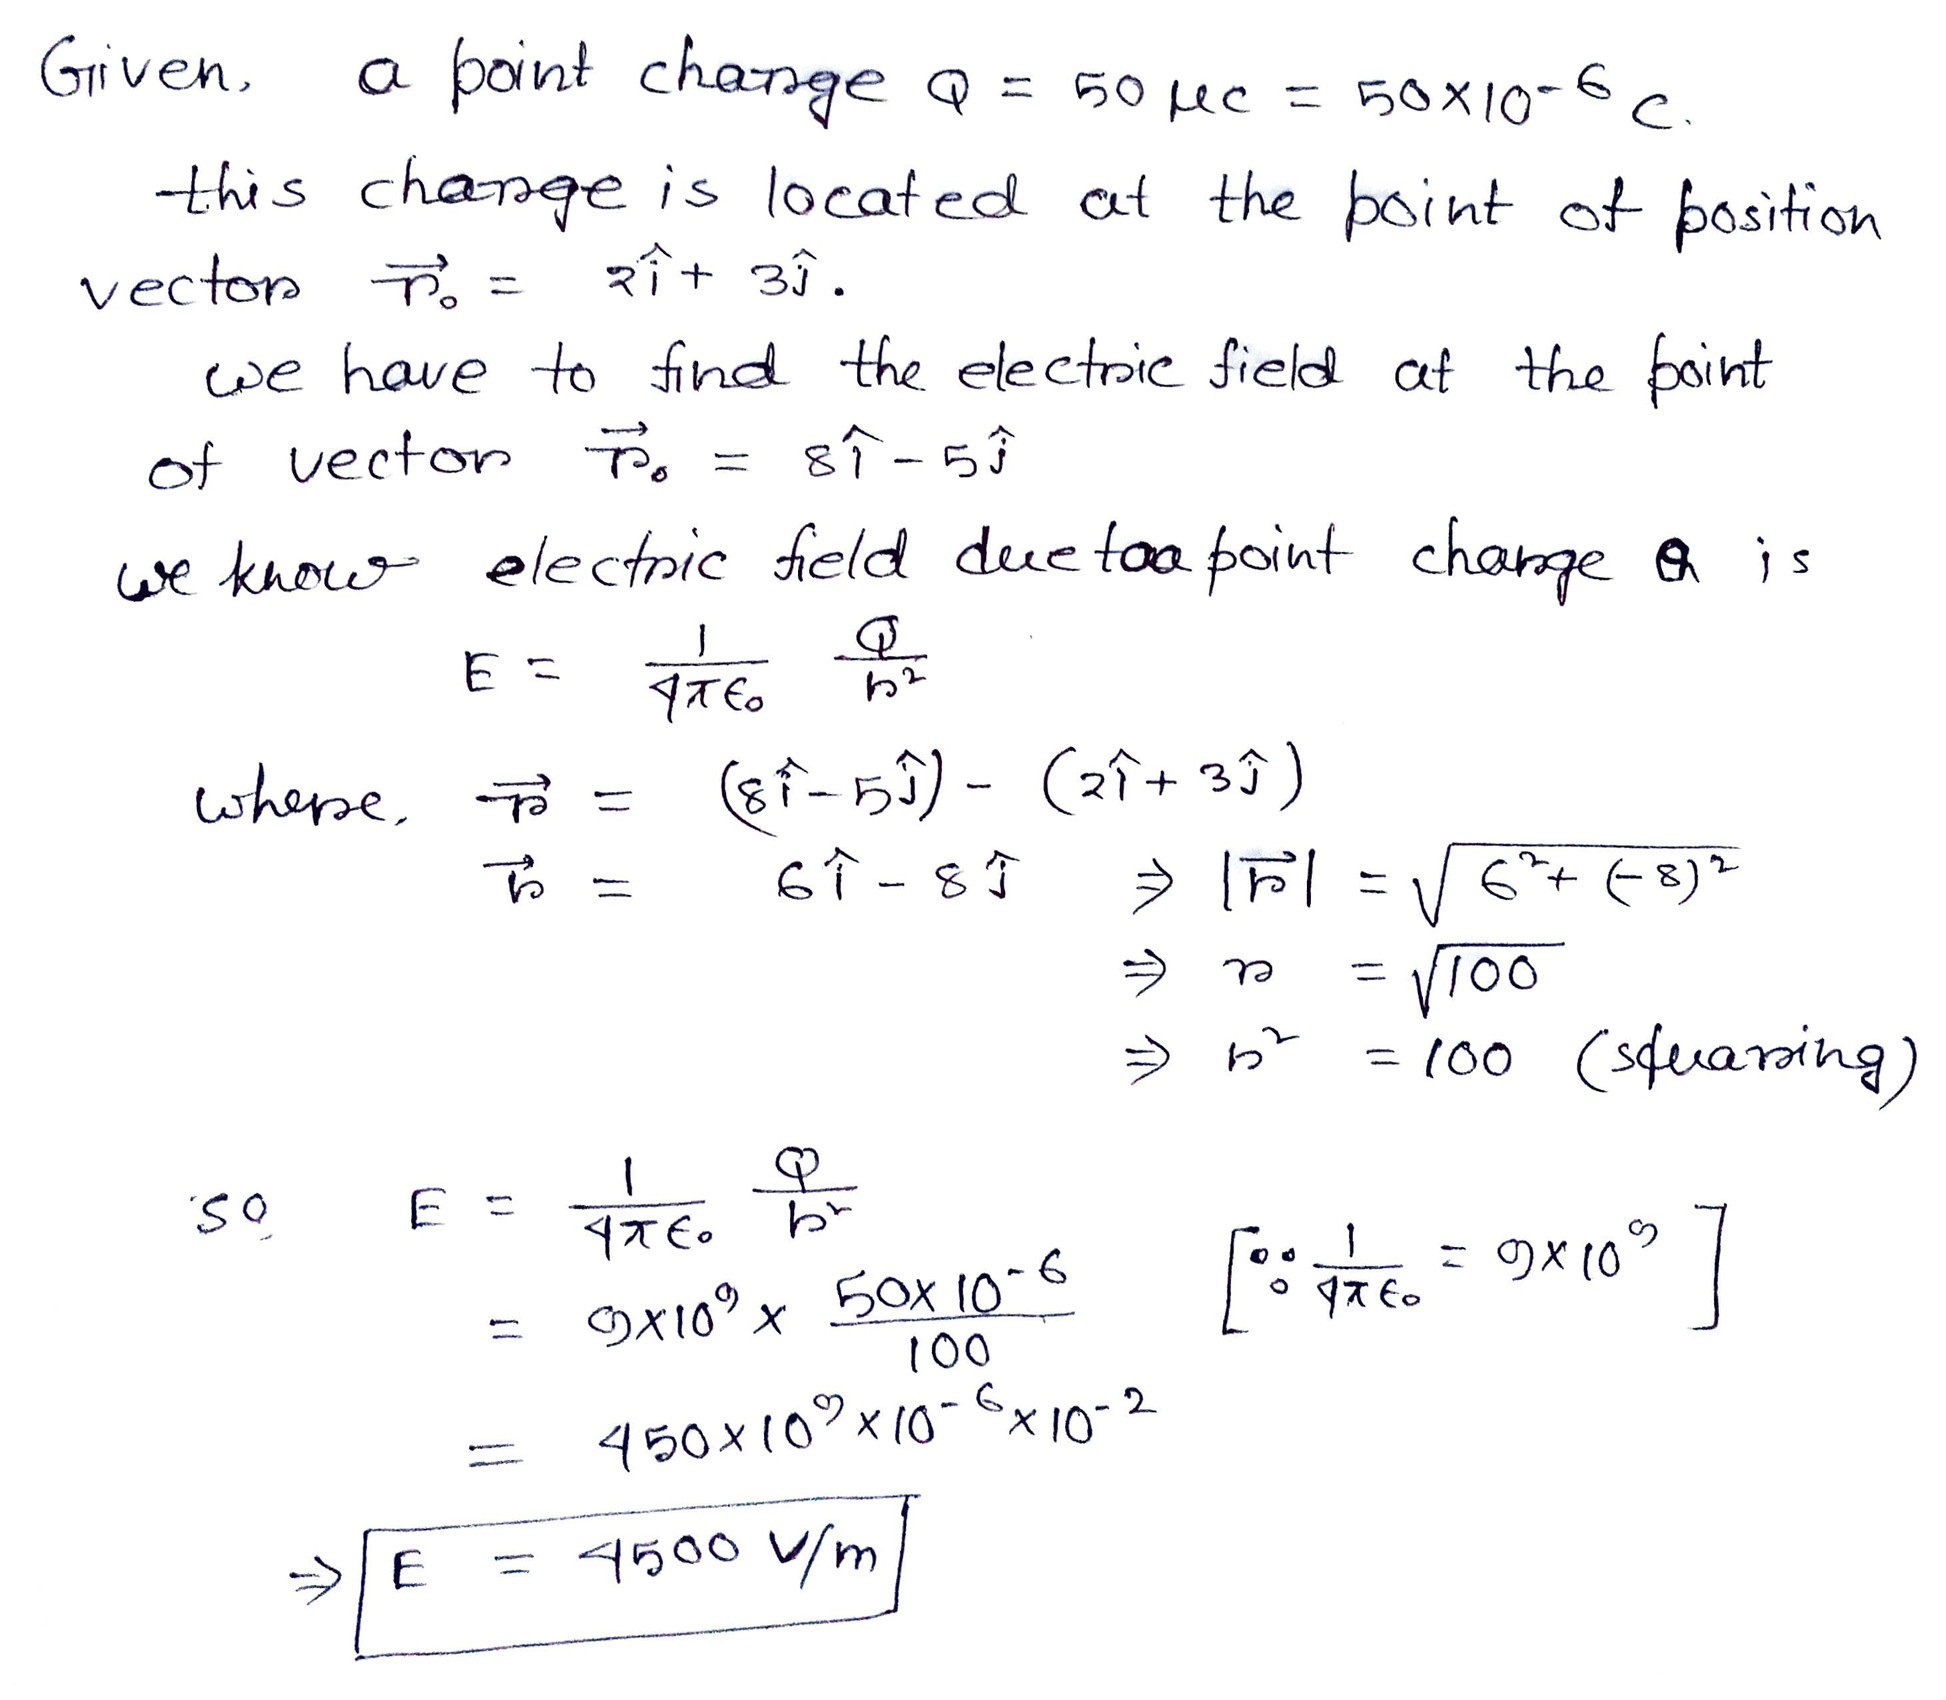 Given, a point charge Q = 50 μC = 50×10⁻⁶ C.
this charge is located at the point of position
vector r⃗₀ = 2î + 3ĵ.
we have to find the electric field at the point
of vector r⃗₀ = 8î - 5ĵ
we know electric field due to a point charge Q is
E = 1/4πϵ₀ Q/r²
where, r⃗ = (8î - 5ĵ) - (2î + 3ĵ)
r⃗ = 6î - 8ĵ ⇒ |r⃗| = √6² + (-8)²
⇒ r = √100
⇒ r² = 100 (squaring)
so, E = 1/4πϵ₀ Q/r²
[∵ 1/4πϵ₀ = 9×10⁹]
= 9×10⁹ × 50×10⁻⁶/100
= 450×10⁹×10⁻⁶×10⁻²
⇒ E = 4500 V/m